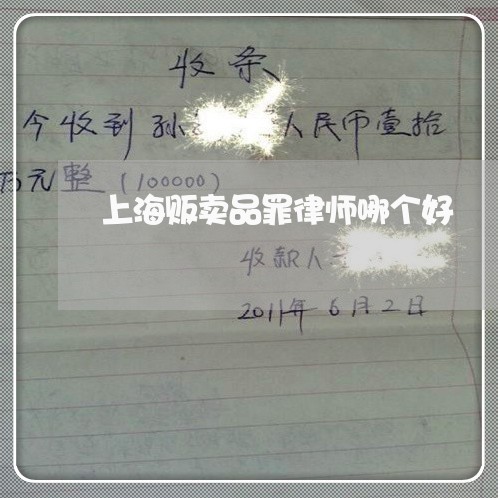 收条
今收到孙 人民币壹拾
万元整(100000)
上海贩卖品罪律师哪个好
收款人
2011年6月2日